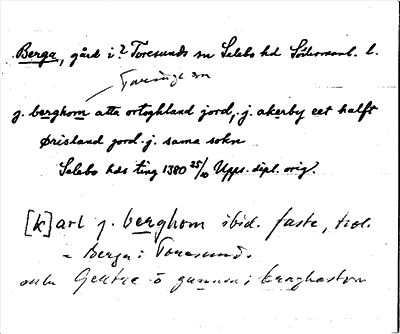 Berga, gård i? Toresunds sn Selebo hd Södermanl. l.
Toresunds sn
j. berghom atta ortoghland jord, j. akerby eet halft
örisland jord j. sama sokn
Selebo hds ting 1380 25/10 Upps. dipl. orig.
[K]arl j. berghom ibid. faste, trol.
= Berga i Toresund.